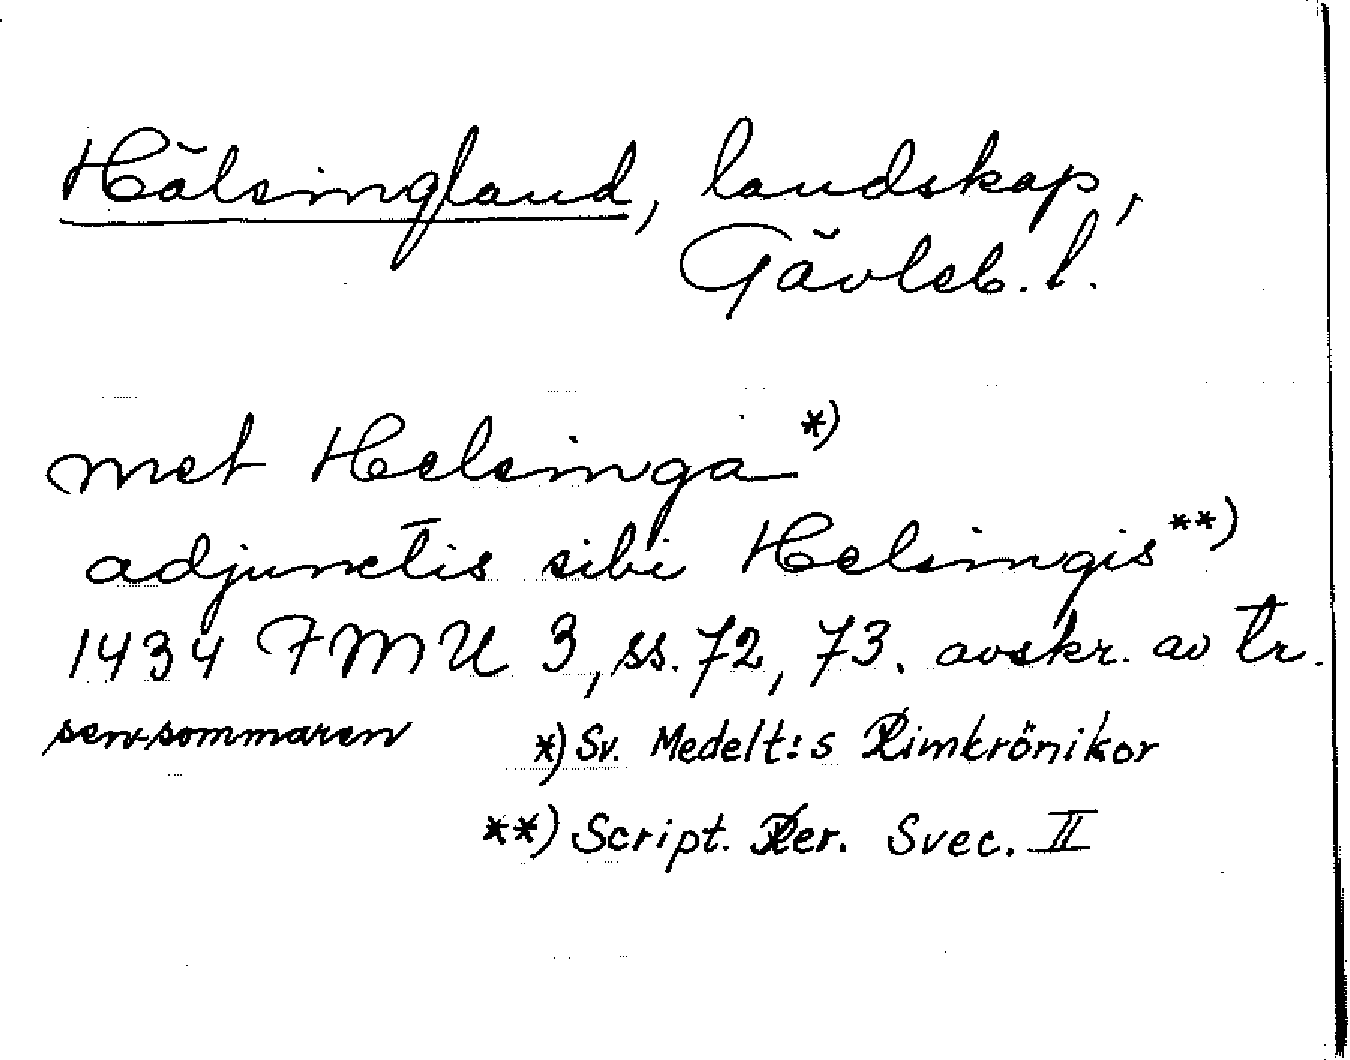 Hälsingland, landskap,
Gävleb. l.
met Helsinga *)
adjunctis sibi Helsingis **)
1434 FMU 3, ss. 72, 73. avskr. av tr.
sensommaren *) Sv. Medelt:s Rimkrönikor
**) Script. Rer. Svec. II